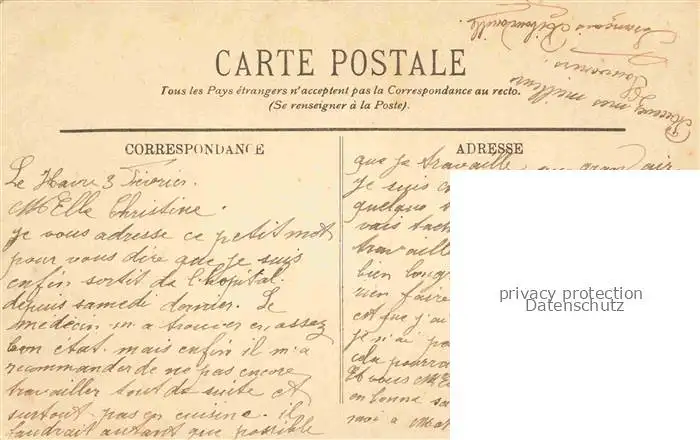 CARTE POSTALE
Tous les Pays étrangers n'acceptent pas la Correspondance au recto.
(Se renseigner à la Poste).
CORRESPONDANCE
Le Havre 3 Fevrier.
MElle Christine.
je vous adresse ce petit mot
pour vous dire que je suis
enfin sortit de l'hôpital.
depuis samedi dernier. Le
medecin m'a trouver en assez
bon état. mais enfin il m'a
recommander de ne pas encore
travailler tout de suite et
surtout pas en cuisine. il
faudrait autant que possible
ADRESSE
que je travaille au grand air
Je suis
quelque
vais tach
travaille
bien long
rien faire
est que j'ai
je n'ai
cela pourra
Et vous MEl
en bonne
moi a
Recevez mes meilleurs
Souvenirs.
François
privacy protection
Datenschutz